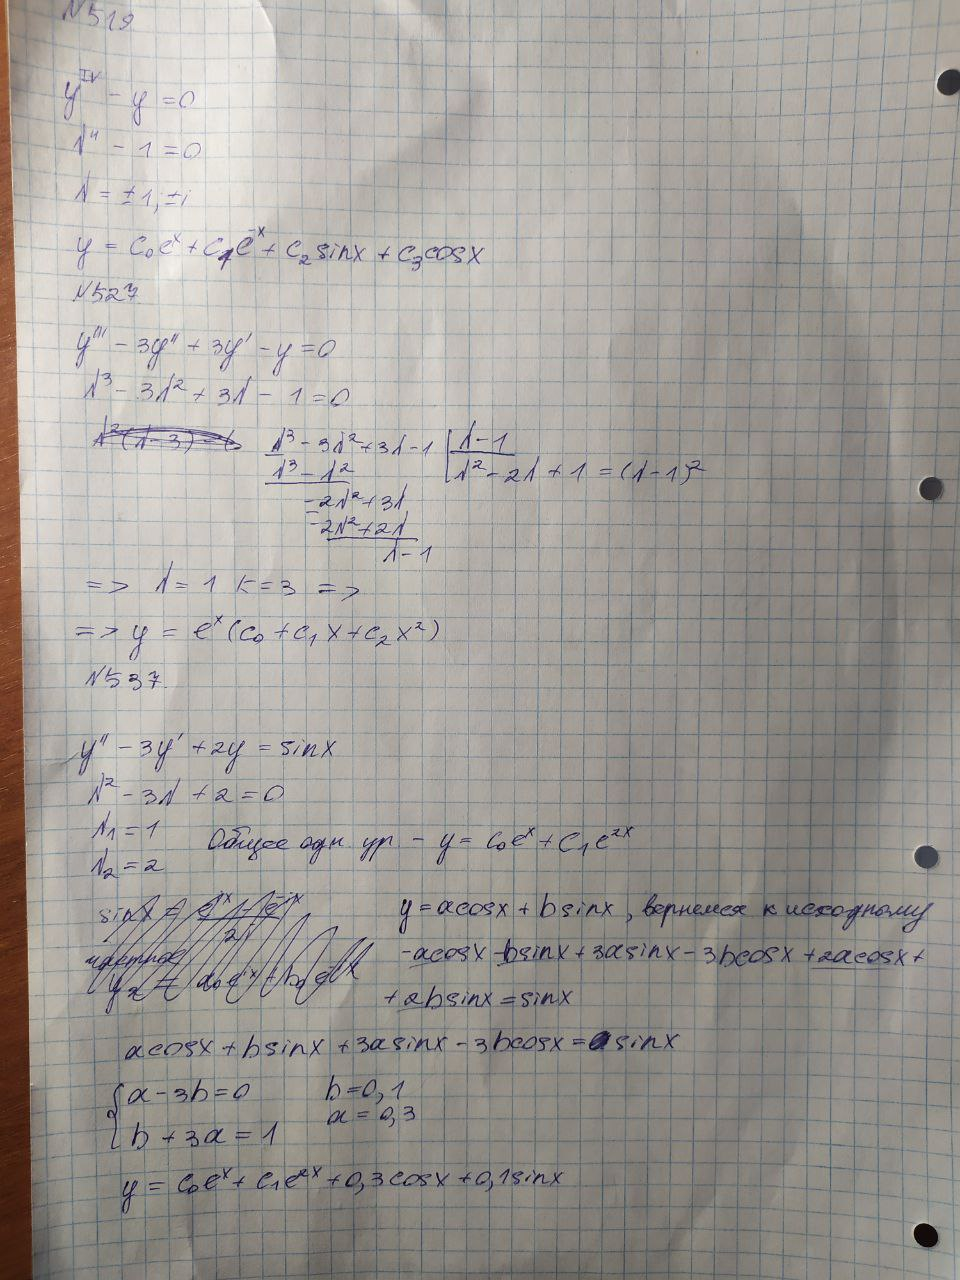 N519
y^IV - y = 0
λ⁴ - 1 = 0
λ = ±1; ±i
y = C₀eˣ + C₁e⁻ˣ + C₂sinx + C₃cosx
N527
y''' - 3y'' + 3y' - y = 0
λ³ - 3λ² + 3λ - 1 = 0
λ²(λ-3) - (
λ³ - 3λ² + 3λ - 1 | λ - 1
λ³ - λ² | λ² - 2λ + 1 = (λ-1)²
-2λ² + 3λ
-2λ² + 2λ
λ - 1
=> λ = 1 k = 3 =>
=> y = eˣ(C₀ + C₁x + C₂x²)
N537
y'' - 3y' + 2y = sinx
λ² - 3λ + 2 = 0
λ₁ = 1
λ₂ = 2
Общее одн ур - y = C₀eˣ + C₁e²ˣ
sinx =
2i
частное
y = acosx + bsinx, вернемся к исходному
-acosx - bsinx + 3asinx - 3bcosx + 2acosx +
+ 2bsinx = sinx
acosx + bsinx + 3asinx - 3bcosx = sinx
a - 3b = 0 b = 0,1
b + 3a = 1 a = 0,3
y = C₀eˣ + C₁e²ˣ + 0,3cosx + 0,1sinx